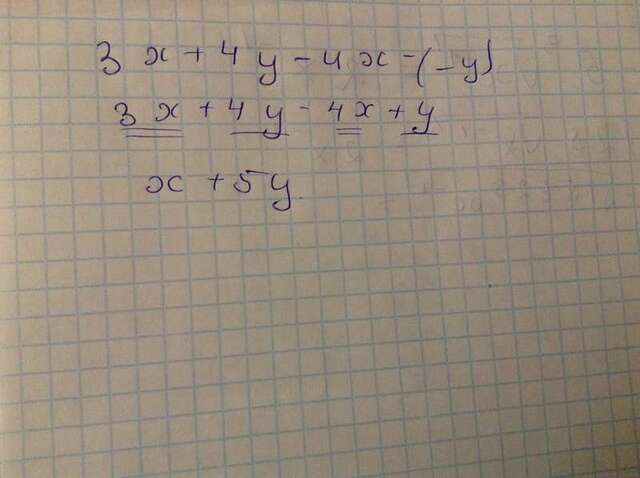 3x + 4y - 4x - (-y)
3x + 4y - 4x + y
x + 5y